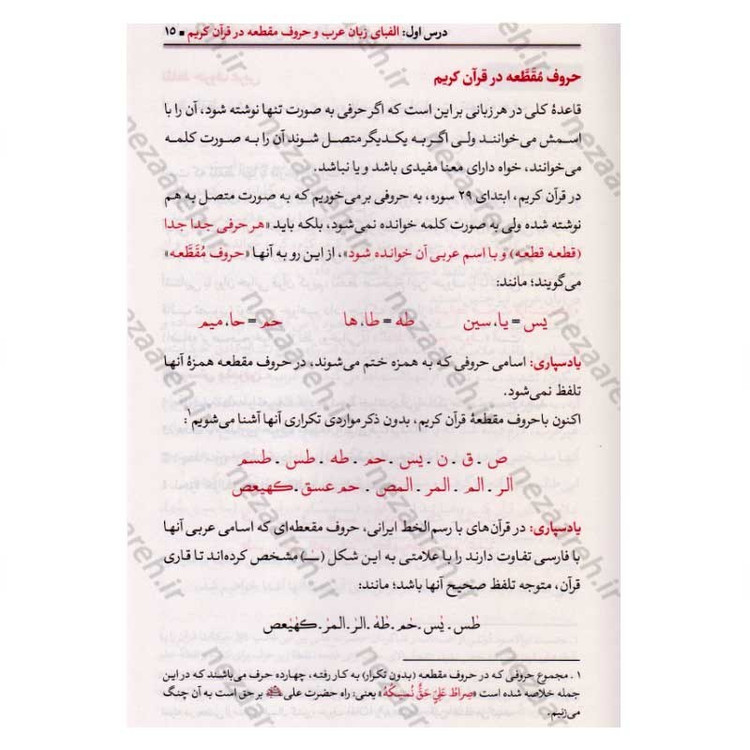 درس اول: الفبای زبان عرب و حروف مقطعه در قرآن کریم ▪ ۱۵
حروف مُقَطَّعه در قرآن کریم
قاعدهٔ کلی در هر زبانی بر این است که اگر حرفی به صورت تنها نوشته شود، آن را با
اسمش می‌خوانند ولی اگر به یکدیگر متصل شوند آن را به صورت کلمه
می‌خوانند، خواه دارای معنا مفیدی باشد و یا نباشد.
در قرآن کریم، ابتدای ۲۹ سوره، به حروفی بر می‌خوریم که به صورت متصل به هم
نوشته شده ولی به صورت کلمه خوانده نمی‌شود، بلکه باید «هر حرفی جدا جدا
(قطعه قطعه) و با اسم عربی آن خوانده شود»، از این رو به آنها «حروف مُقَطَّعه»
می‌گویند؛ مانند:
یس = یا، سین طه = طا، ها حم = حا، میم
یادسپاری: اسامی حروفی که به همزه ختم می‌شوند، در حروف مقطعه همزهٔ آنها
تلفظ نمی‌شود.
اکنون باحروف مقطعهٔ قرآن کریم، بدون ذکر مواردی تکراری آنها آشنا می‌شویم۱:
ص . ق . ن . یس . حم . طه . طس . طسم
الر . الم . المر . المص . حم عسق . کهیعص
یادسپاری: در قرآن‌های با رسم الخط ایرانی، حروف مقعطه‌ای که اسامی عربی آنها
با فارسی تفاوت دارند را با علامتی به این شکل (ــٰـ) مشخص کرده‌اند تا قاری
قرآن، متوجه تلفظ صحیح آنها باشد؛ مانند:
طٰس . یٰس . حٰم . طٰهٰ . الرٰ . المرٰ . کهٰیٰعص
۱ . مجموع حروفی که در حروف مقطعه (بدون تکرار) به کار رفته، چهارده حرف می‌باشند که در این
جمله خلاصه شده است «صِراطُ عَلِیٍّ حَقٌّ نُمسِکُهُ» یعنی: راه حضرت علی بر حق است به آن چنگ
می‌زنیم.
nezaareh.ir